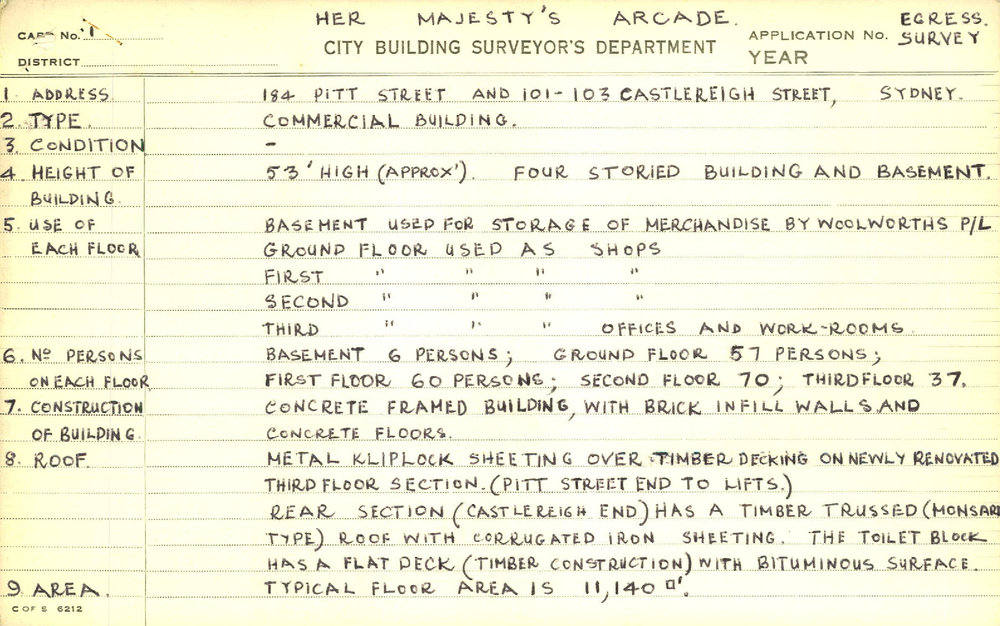 HER MAJESTY'S ARCADE. EGRESS.
CARD No. 1 CITY BUILDING SURVEYOR'S DEPARTMENT APPLICATION No. SURVEY
DISTRICT YEAR
1 ADDRESS. 184 PITT STREET AND 101-103 CASTLEREIGH STREET, SYDNEY.
2. TYPE. COMMERCIAL BUILDING.
3. CONDITION -
4 HEIGHT OF 53' HIGH (APPROX'). FOUR STORIED BUILDING AND BASEMENT.
BUILDING.
5. USE OF BASEMENT USED FOR STORAGE OF MERCHANDISE BY WOOLWORTHS P/L
EACH FLOOR GROUND FLOOR USED AS SHOPS
FIRST " " " "
SECOND " " " "
THIRD " " " OFFICES AND WORK-ROOMS.
6. Nº PERSONS BASEMENT 6 PERSONS; GROUND FLOOR 57 PERSONS;
ON EACH FLOOR FIRST FLOOR 60 PERSONS; SECOND FLOOR 70; THIRD FLOOR 37.
7. CONSTRUCTION CONCRETE FRAMED BUILDING, WITH BRICK INFILL WALLS AND
OF BUILDING. CONCRETE FLOORS.
8. ROOF. METAL KLIPLOCK SHEETING OVER TIMBER DECKING ON NEWLY RENOVATED
THIRD FLOOR SECTION. (PITT STREET END TO LIFTS.)
REAR SECTION (CASTLEREIGH END) HAS A TIMBER TRUSSED (MONSARD
TYPE) ROOF WITH CORRUGATED IRON SHEETING. THE TOILET BLOCK
HAS A FLAT DECK (TIMBER CONSTRUCTION) WITH BITUMINOUS SURFACE.
9 AREA. TYPICAL FLOOR AREA IS 11,140 □'.
C OF S 6212